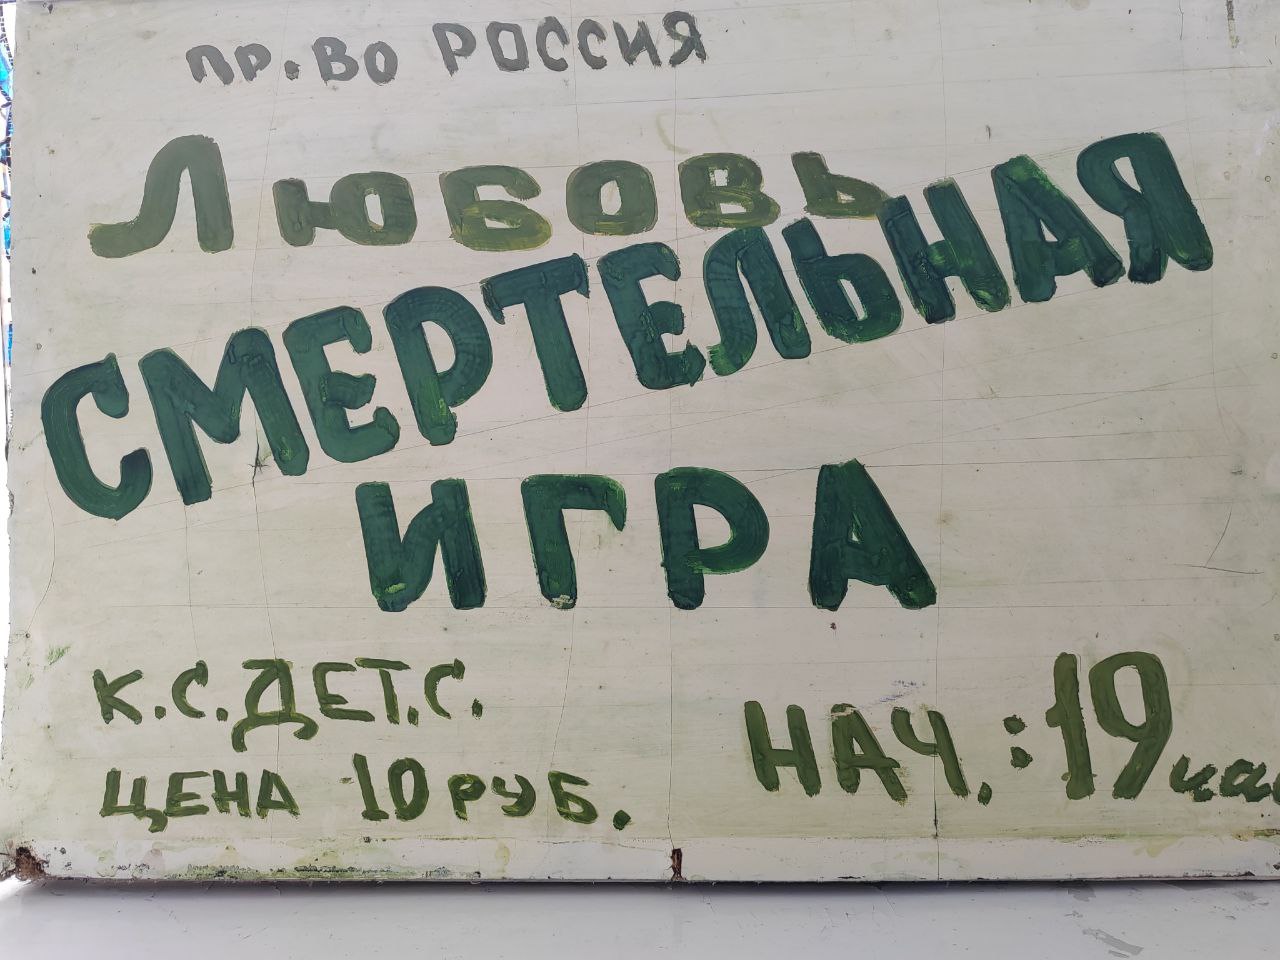 пр.во РОССИЯ
Любовь
СМЕРТЕЛЬНАЯ
ИГРА
К.С.ДЕТ.С.
ЦЕНА 10 РУБ.
НАЧ.:19